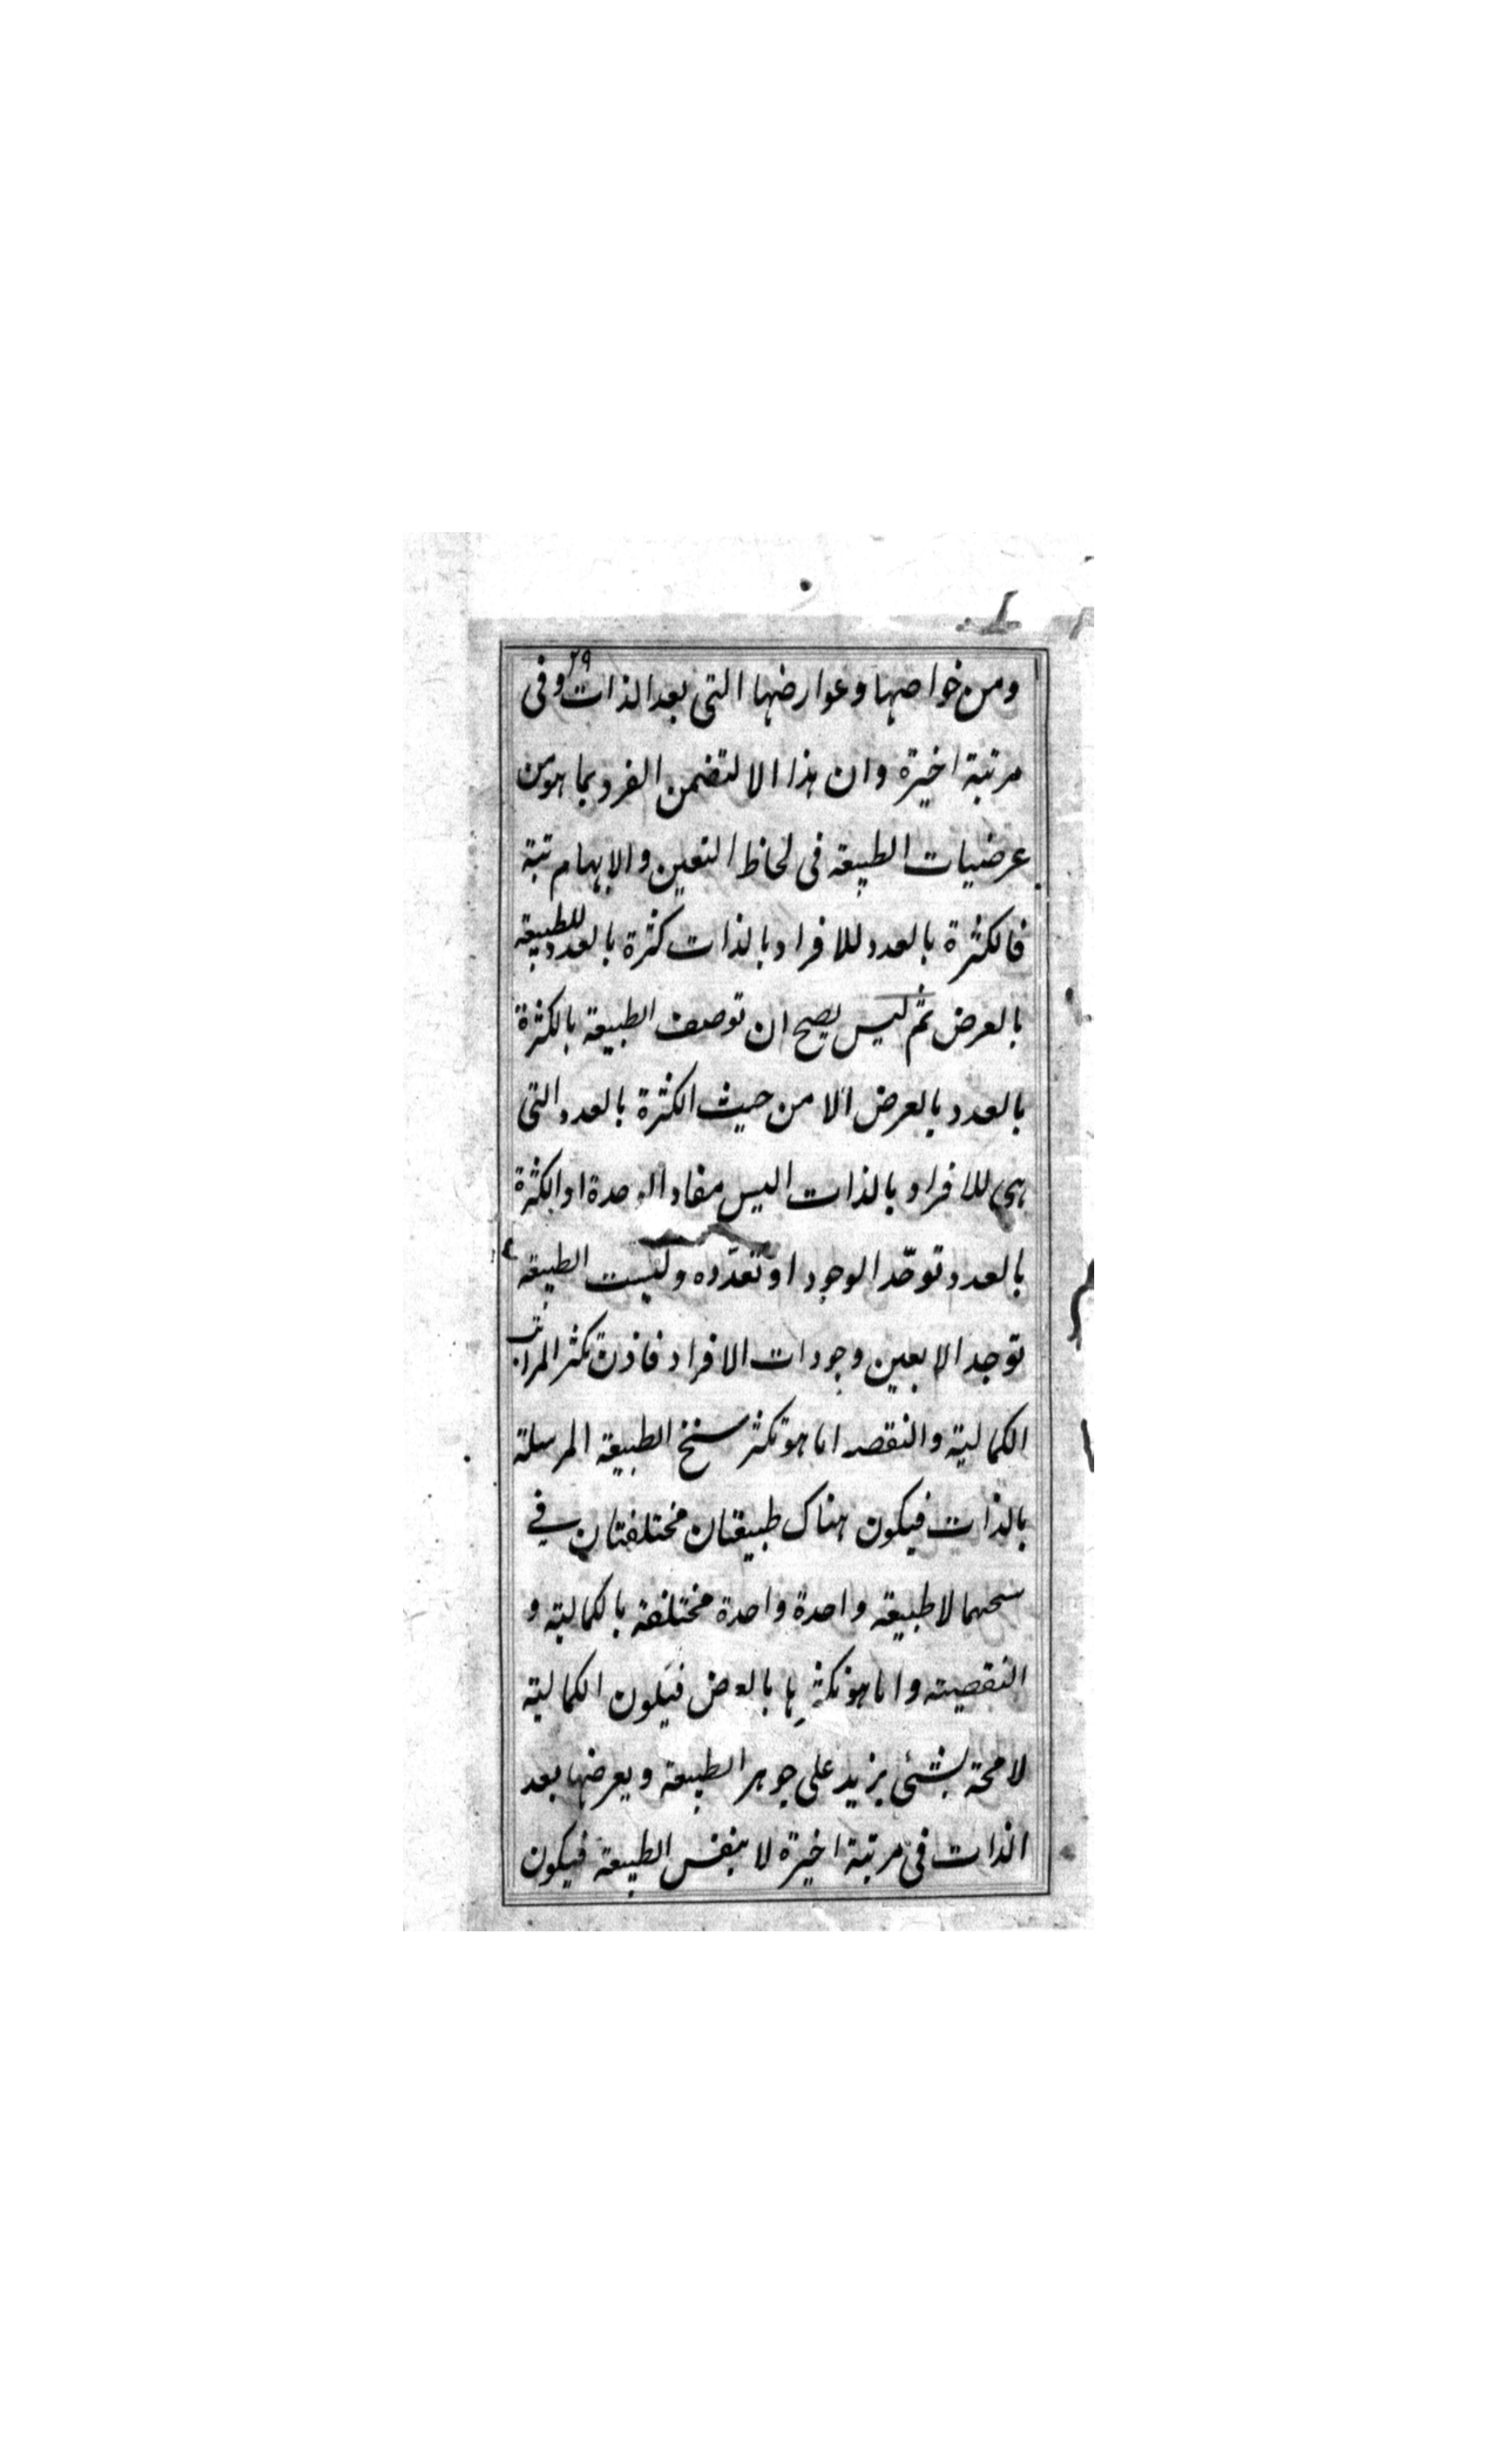 ٢٩
ومن خواصها وعوارضها التى بعد الذات وفى
مرتبة اخيرة وان هذا الا لتضمن الفرد بما هو من
عرضيات الطبيعة فى لحاظ التعين والابهام تبة
فالكثرة بالعدد للافراد بالذات كثرة بالعدد للطبيعة
بالعرض ثم ليس يصح ان توصف الطبيعة بالكثرة
بالعدد بالعرض الا من حيث الكثرة بالعدد التى
هى للافراد بالذات اليس مفاد الوحدة او الكثرة
بالعدد توحّد الوجود او تعدّده وليست الطبيعة
توجد الا بعين وجودات الافراد فاذن تكثر المراتب
الكمالية والنقصه اما هو تكثر سنخ الطبيعة المرسلة
بالذات فيكون هناك طبيعتان مختلفتان في
سنحهما لا طبيعة واحدة واحدة مختلفة بالكمالية و
النقصية واما هو تكثرها بالعرض فيكون الكمالية
لا محة بشئى يزيد على جوهر الطبيعة ويعرضها بعد
الذات فى مرتبة اخيرة لا بنفس الطبيعة فيكون